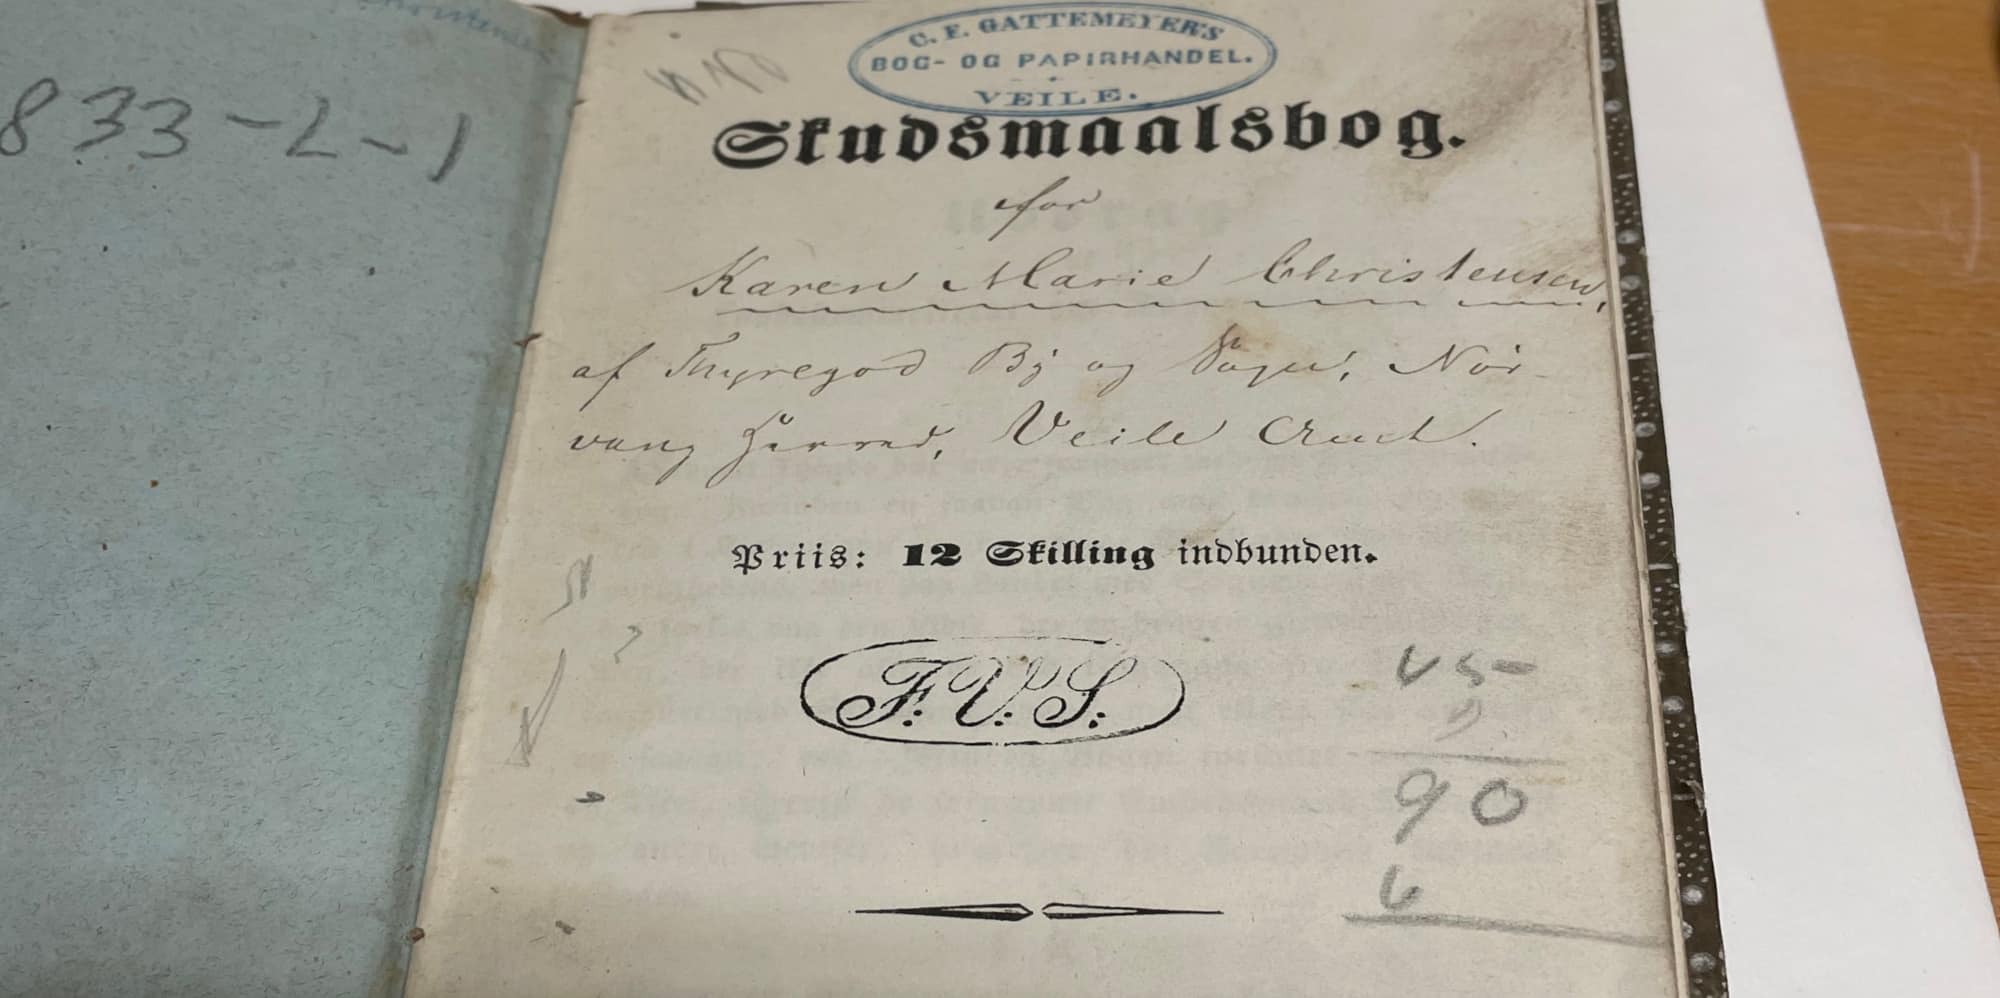 833-2-1
C. E. GATTEMEYER'S
BOG- OG PAPIRHANDEL.
VEILE.
Skudsmaalsbog.
for
Karen Marie Christensen,
af Thyregod By og Sogn, Nör-
vang Herred, Veile Amt.
Priis: 12 Skilling indbunden.
F.V.S.
90
6